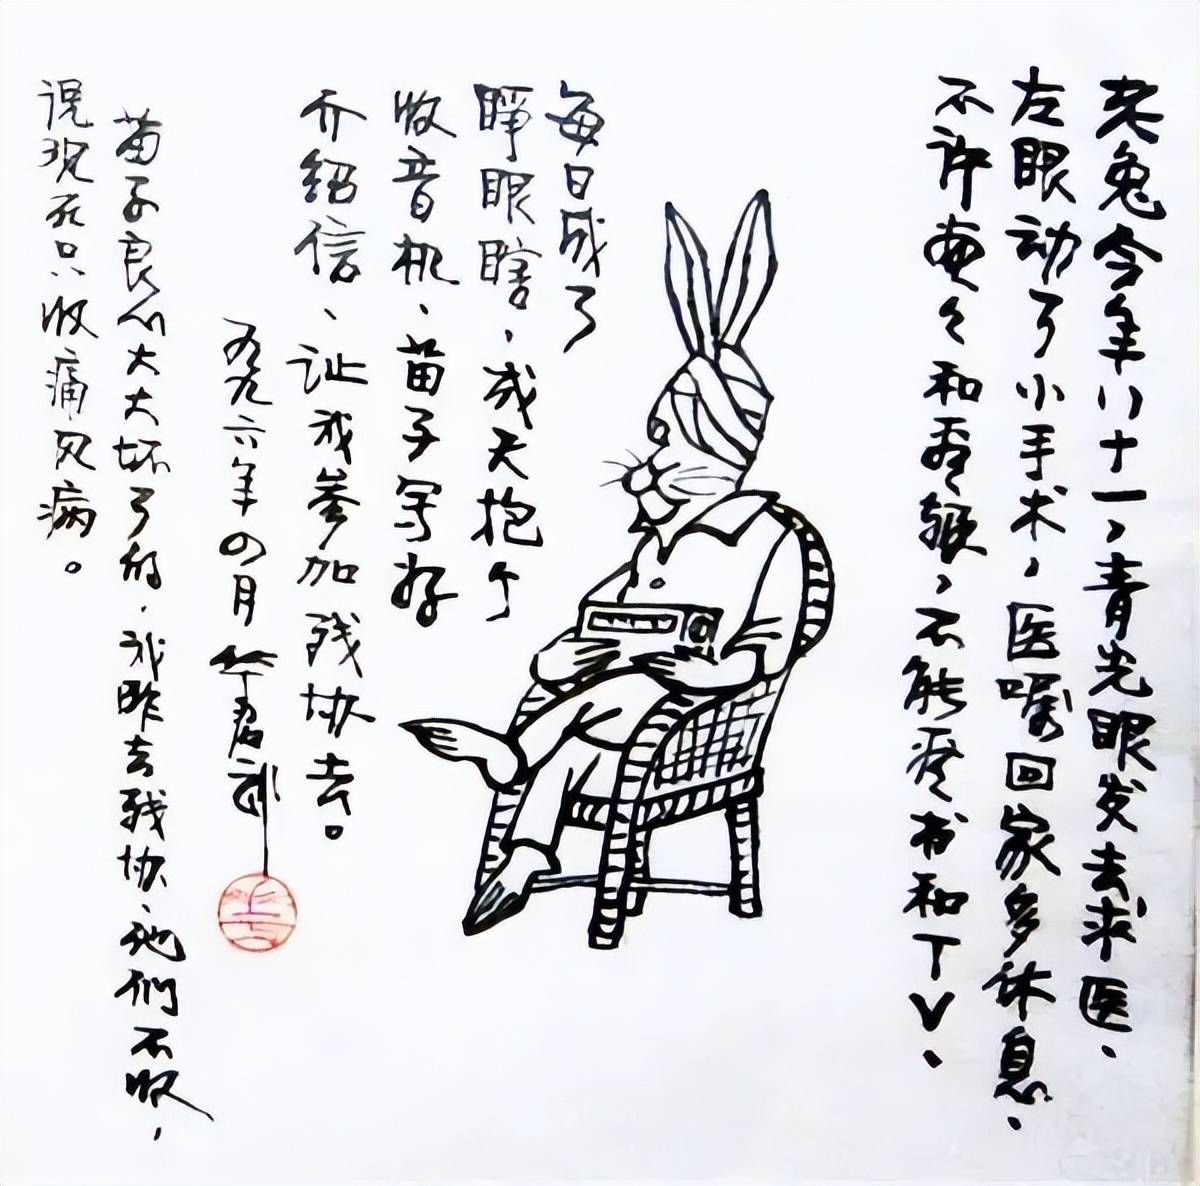 老兔今年八十一，青光眼发去求医、
左眼动了小手术，医嘱回家多休息、
不许画々和，不能看书和TV、
每日成了
睁眼瞎，成天抱个
收音机、苗子写好
介绍信、让我参加残协去。
九九六年四月 华君武
苗子良心大大坏了的，我昨去残协、他们不收，
说现在只收痛风病。